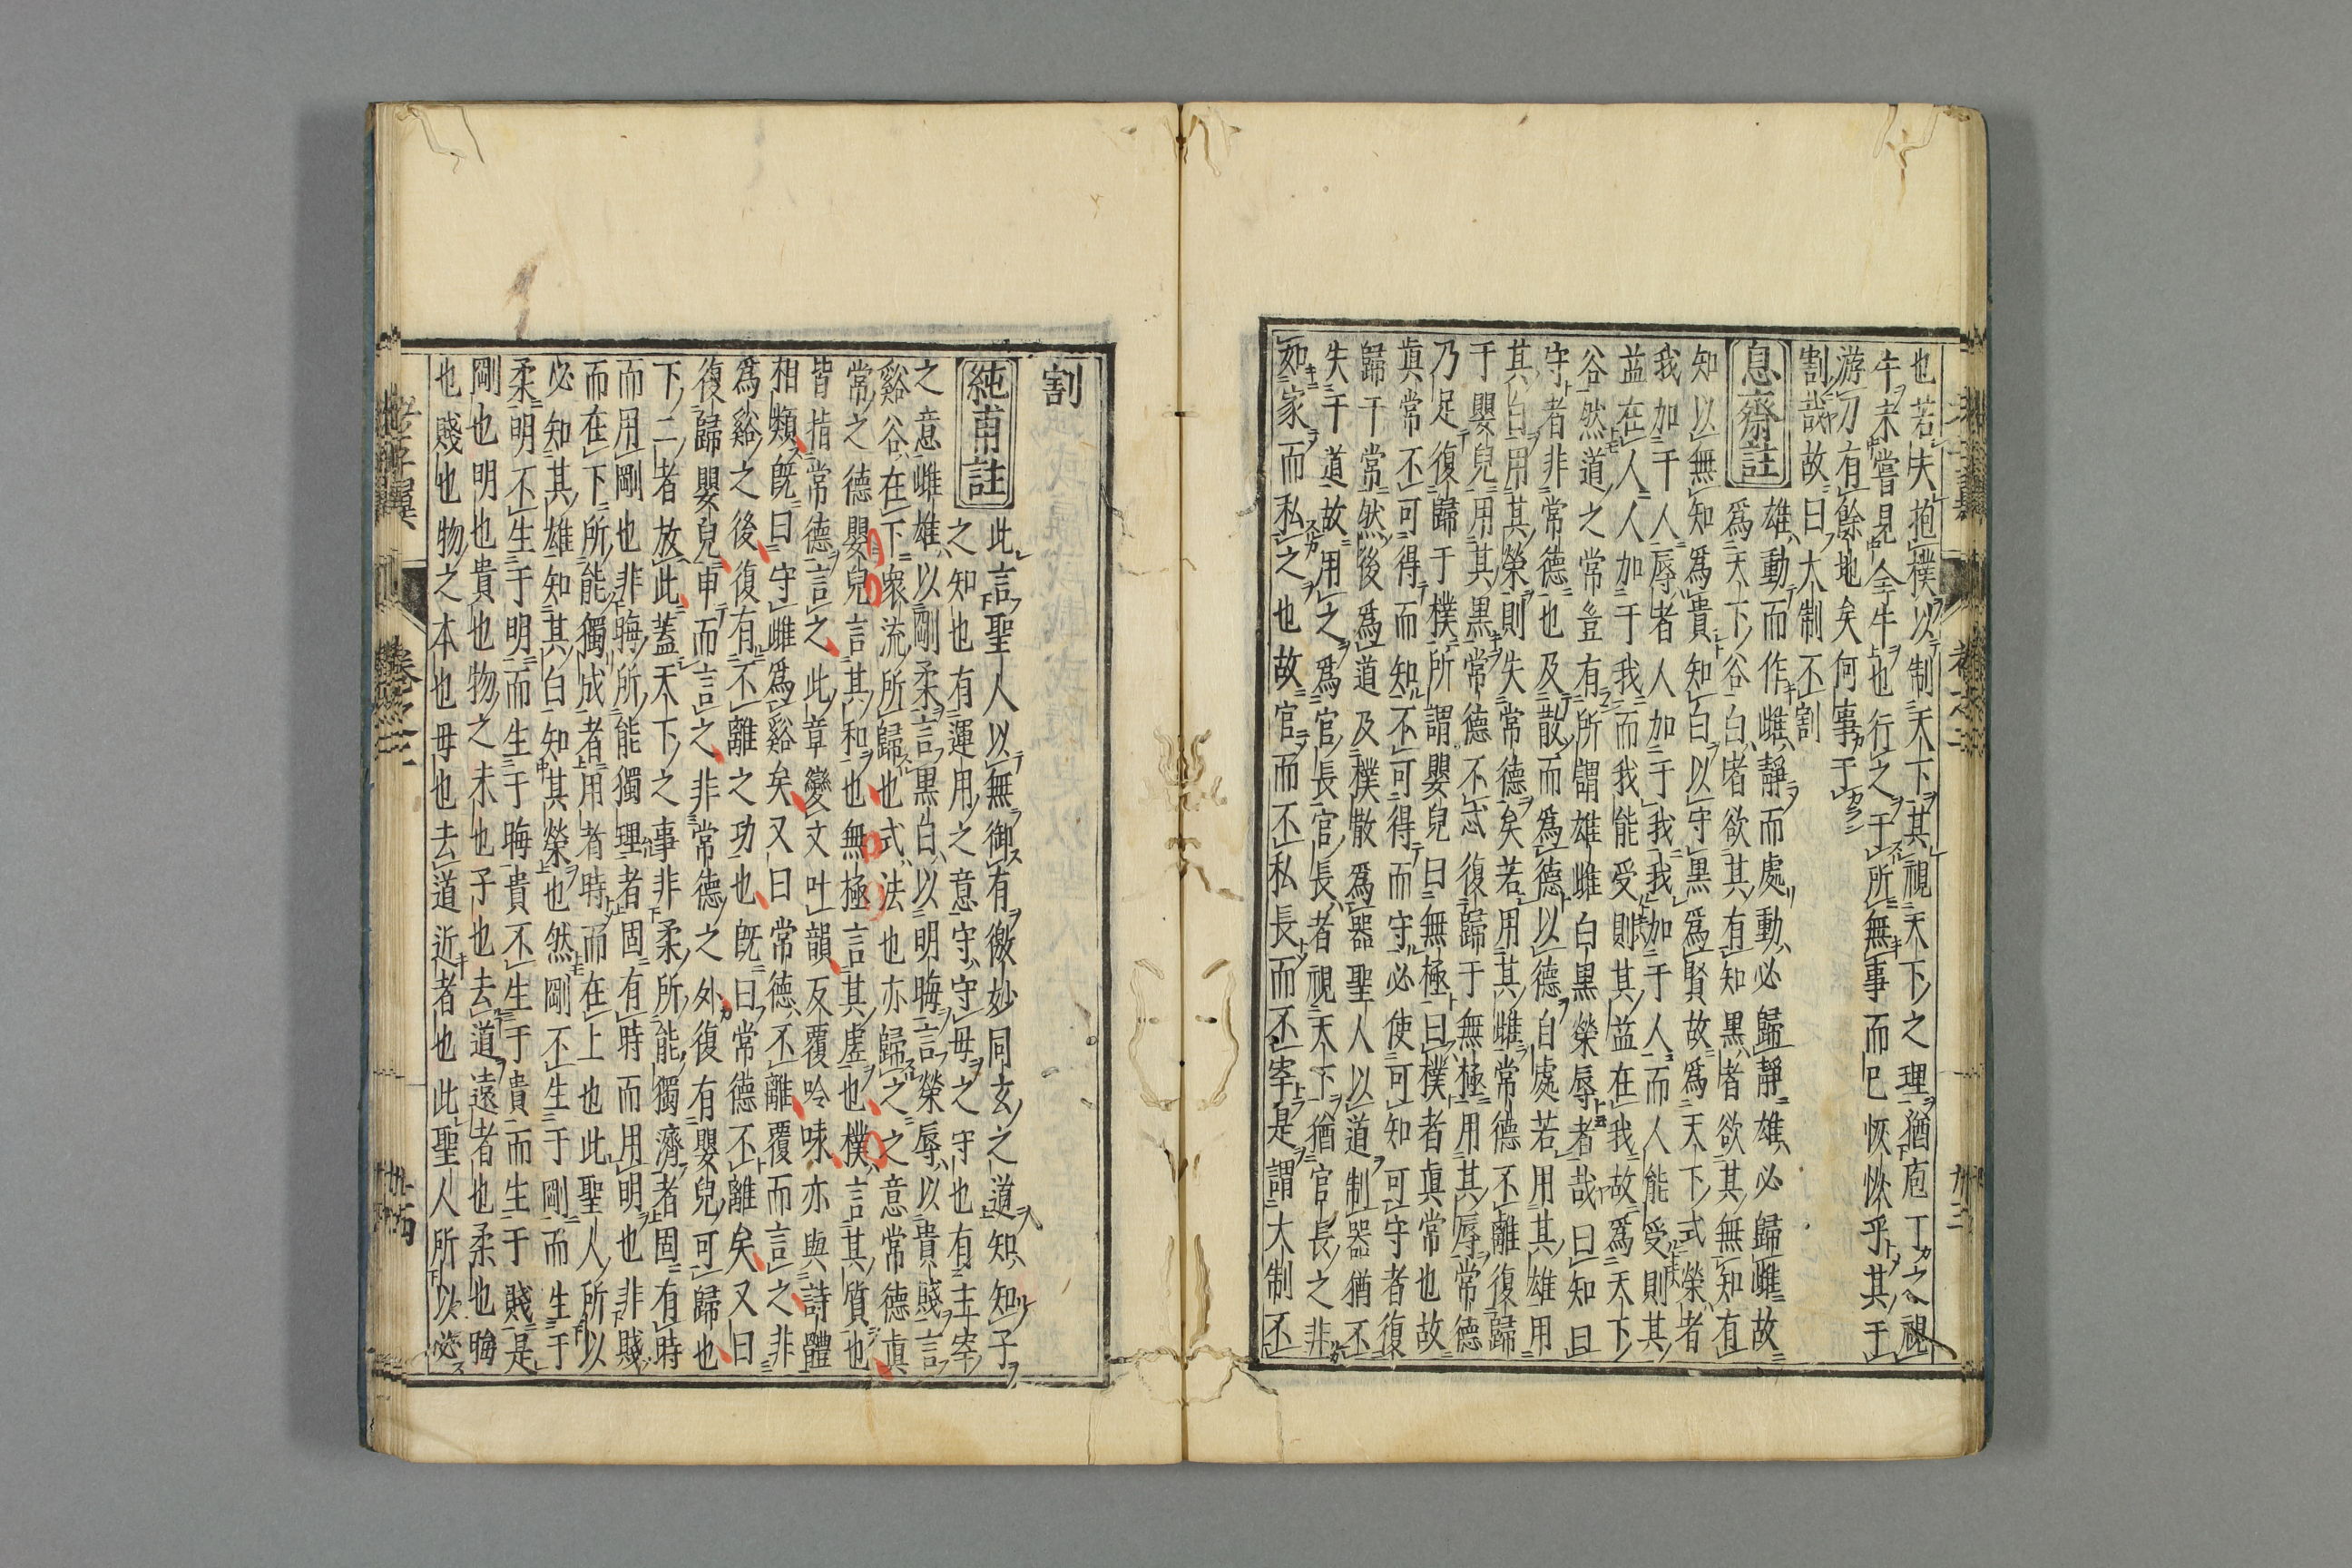 也若夫抱樸以制天下其視天下之理猶庖丁之視
牛未嘗見全牛也行之于所無事而已恢恢乎其于
游刃有餘地矣何事于
割哉故曰大制不割
息齋註 雄動而作雌靜而處動必歸靜雄必歸雌故
爲天下谷白者欲其有知黑者欲其無知有
知以無知爲貴知白以守黑爲賢故爲天下式榮者
我加于人辱者人加于我我加于人而人能受則其
益在人人加于我而我能受則其益在我故爲天下
谷然道之常豈有所謂雄雌白黑榮辱者哉曰知曰
守者非常德也及散而爲德以德自處若用其雄用
其白用其榮則失常德矣若用其雌常德不離復歸
于嬰兒用其黑常德不忒復歸于無極用其辱常德
乃足復歸于樸所謂嬰兒曰無極曰樸者眞常也故
眞常不可得而知不可得而守必使可知可守者復
歸于常然後爲道及樸散爲器聖人以道制器猶不
失于道故用之爲官長官長者視天下猶官長之非
如家而私之也故官而不私長而不宰是謂大制不
卅三
割
純甫註 此言聖人以無御有徼妙同玄之道知知子
之知也有運用之意守守母之守也有主宰
之意雌雄以剛柔言黑白以明晦言榮辱以貴賤言
谿谷在下衆流所歸也式法也亦歸之之意常德眞
常之德嬰兒言其和也無極言其虛也樸言其質也
皆指常德言之此章變文吐韻反覆吟味亦與詩體
相類旣曰守雌爲谿矣又曰常德不離覆而言之非
爲谿之後復有不離之功也旣曰常德不離矣又曰
復歸嬰兒申而言之非常德之外復有嬰兒可歸也
下二者放此蓋天下之事非柔所能獨濟者固有時
而用剛也非晦所能獨理者固有時而用明也非賤
而在下所能獨成者用者時而在上也此聖人所以
必知其雄知其白知其榮也然剛不生于剛而生于
柔明不生于明而生于晦貴不生于貴而生于賤是
剛也明也貴也物之末也子也去道遠者也柔也晦
也賤也物之本也母也去道近者也此聖人所以必
老子翼 卷之三